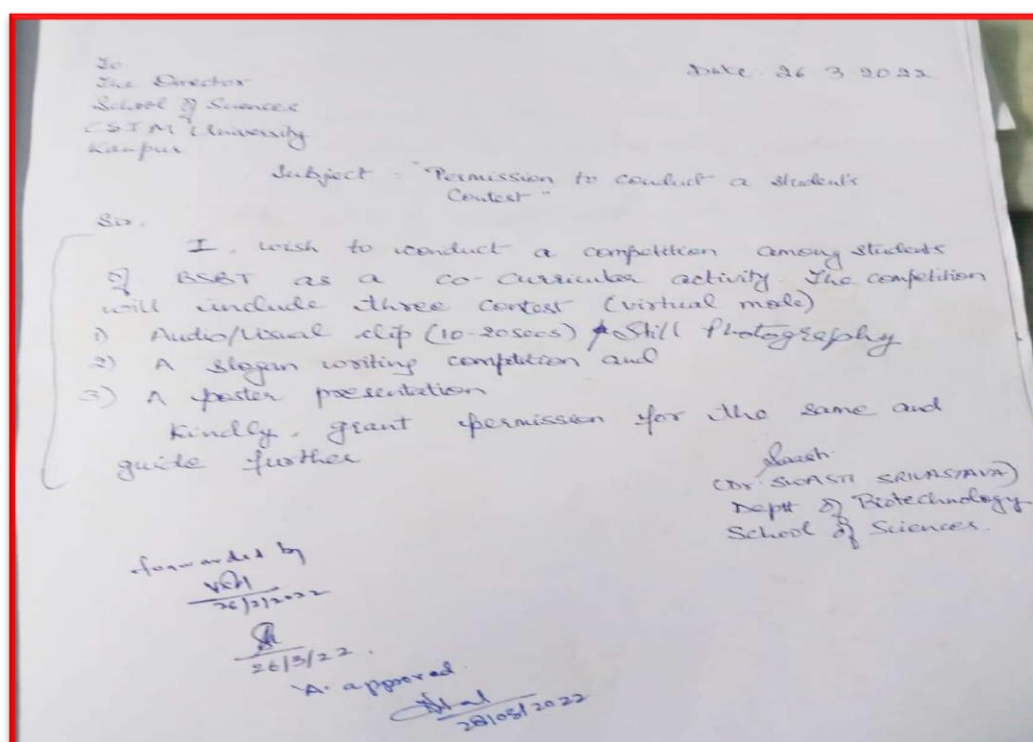 To
Date: 26 3 2022
The Director
School of Sciences
CSJM University
Kanpur
Subject - "Permission to conduct a student's
Contest"
Sir.
I. wish to conduct a competition among students
of BSBT as a co-curricular activity. The competition
will include three contest (virtual mode)
1) Audio/Visual clip (10-20secs) / Still Photography
2) A slogan writing competition and
3) A poster presentation
Kindly, grant permission for the same and
guide further
(Dr. SWASTI SRIVASTAVA)
Deptt of Biotechnology
School of Sciences.
forwarded by
26/3/2022
26/3/22.
'A' approved
28/03/2022